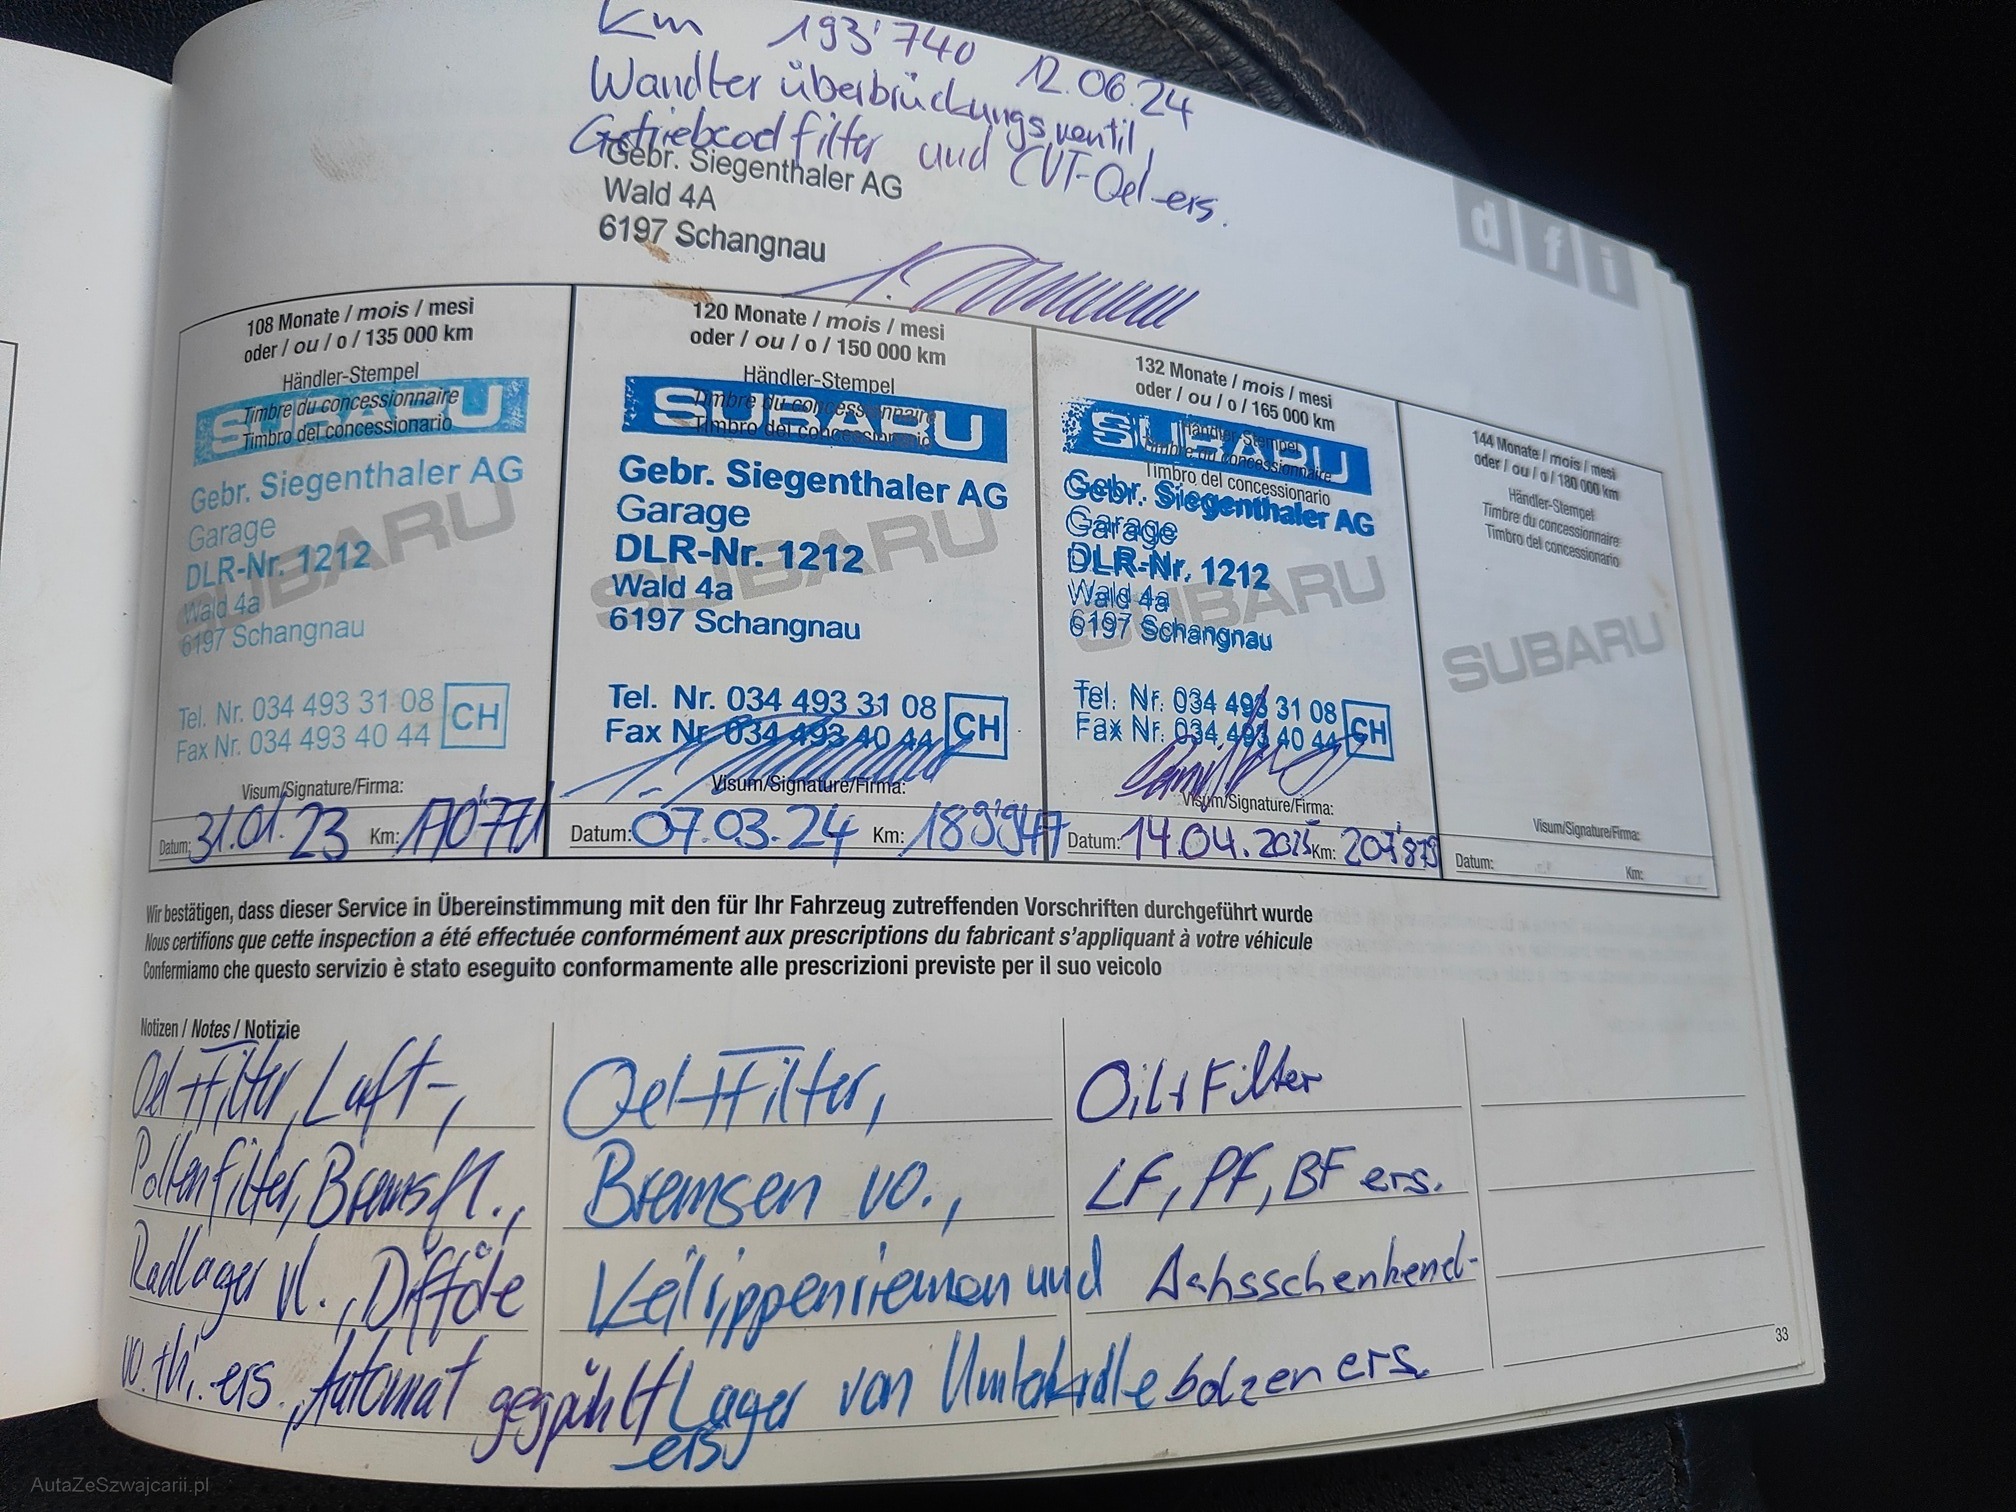 Km 193'740 12.06.24
Wandler überbrückungsventil,
Getriebeoel filter und CVT-Oel ers.
Gebr. Siegenthaler AG
Wald 4A
6197 Schangnau
dfi
108 Monate / mois / mesi
oder / ou / o / 135 000 km
Händler-Stempel
Timbre du concessionnaire
Timbro del concessionario
SUBARU
Gebr. Siegenthaler AG
Garage
DLR-Nr. 1212
SUBARU
Wald 4a
6197 Schangnau
Tel. Nr. 034 493 31 08
Fax Nr. 034 493 40 44
CH
Visum/Signature/Firma:
Datum: 31.01.23 Km: 170'771
120 Monate / mois / mesi
oder / ou / o / 150 000 km
Händler-Stempel
Timbre du concessionnaire
Timbro del concessionario
SUBARU
Gebr. Siegenthaler AG
Garage
DLR-Nr. 1212
SUBARU
Wald 4a
6197 Schangnau
Tel. Nr. 034 493 31 08
Fax Nr. 034 493 40 44
CH
Visum/Signature/Firma:
Datum: 07.03.24 Km: 189'947
132 Monate / mois / mesi
oder / ou / o / 165 000 km
Händler-Stempel
Timbre du concessionnaire
Timbro del concessionario
SUBARU
Gebr. Siegenthaler AG
Garage
DLR-Nr. 1212
SUBARU
Wald 4a
6197 Schangnau
Tel. Nr. 034 493 31 08
Fax Nr. 034 493 40 44
CH
Visum/Signature/Firma:
Datum: 14.04.2025 Km: 207'879
144 Monate / mois / mesi
oder / ou / o / 180 000 km
Händler-Stempel
Timbre du concessionnaire
Timbro del concessionario
SUBARU
Visum/Signature/Firma:
Datum: Km:
Wir bestätigen, dass dieser Service in Übereinstimmung mit den für Ihr Fahrzeug zutreffenden Vorschriften durchgeführt wurde
Nous certifions que cette inspection a été effectuée conformément aux prescriptions du fabricant s'appliquant à votre véhicule
Confermiamo che questo servizio è stato eseguito conformamente alle prescrizioni previste per il suo veicolo
Notizen / Notes / Notizie
Oel+Filter, Luft-,
Pollenfilter, Bremsfl.,
Radlager vl., Difföle
vo. + hi. ers., Automat gespühlt
Oel+Filter,
Bremsen vo.,
Keilrippenriemen und
Lager von Umlenkrolle
ers.
Oil+Filter
LF, PF, BF ers.
Achsschenkel-
bolzen ers.
33
AutaZeSzwajcarii.pl